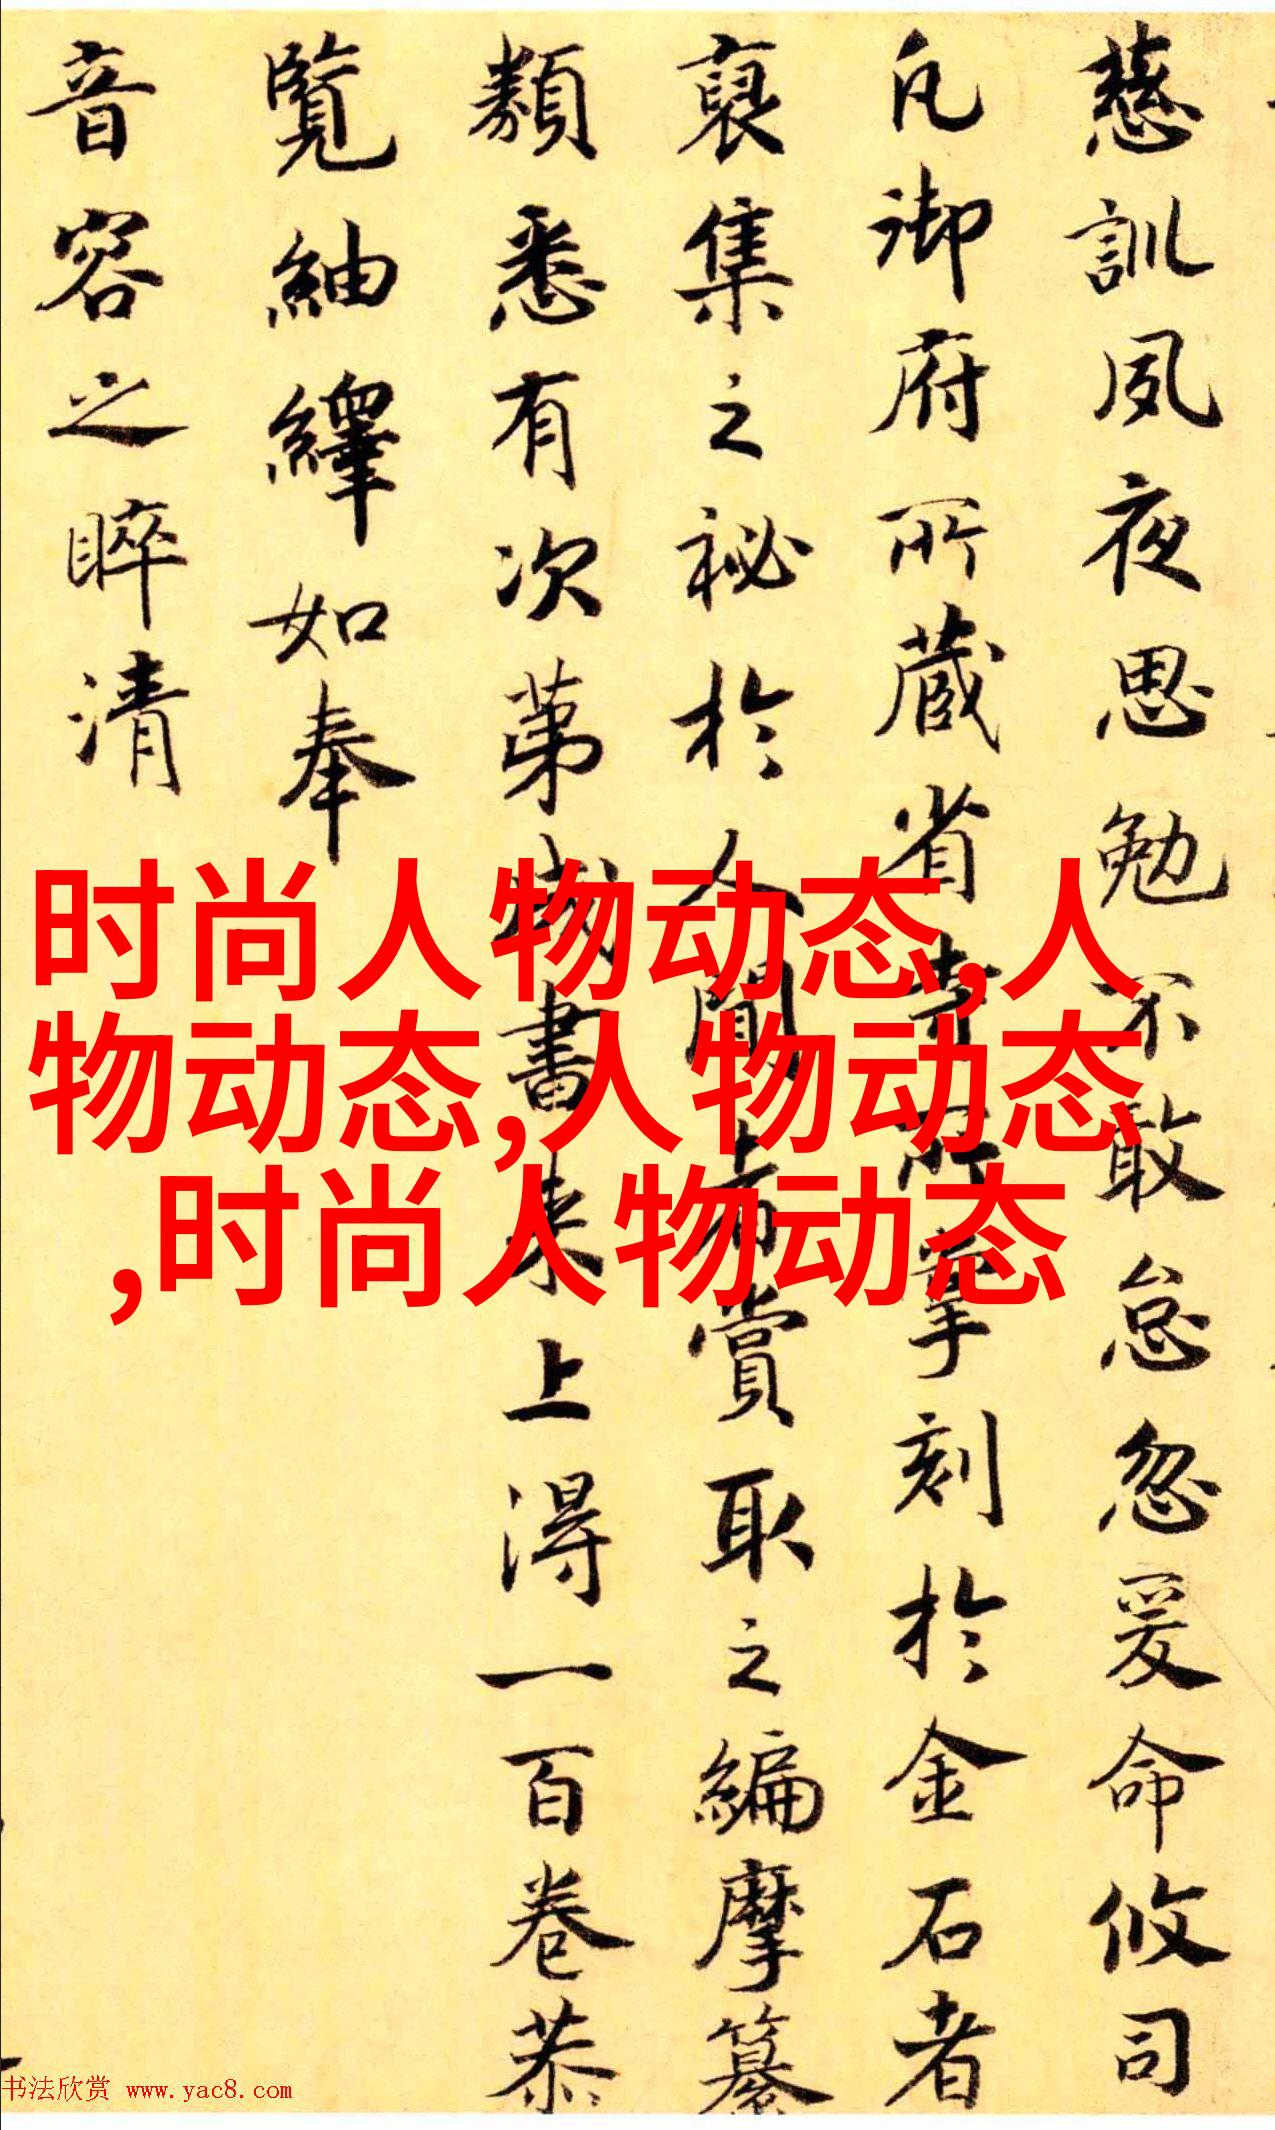 慈訓夙夜思勉不敢怠忽爰命攸司
凡御府所藏省寺所掌刻於金石者
裒集之祕於人間者賞取之編摩纂
類悉有次第書來上淂一百卷恭
覽紬繹如奉
音容之睟清
时尚人物动态,人
物动态,人物动态
,时尚人物动态
书法欣赏 www.yac8.com